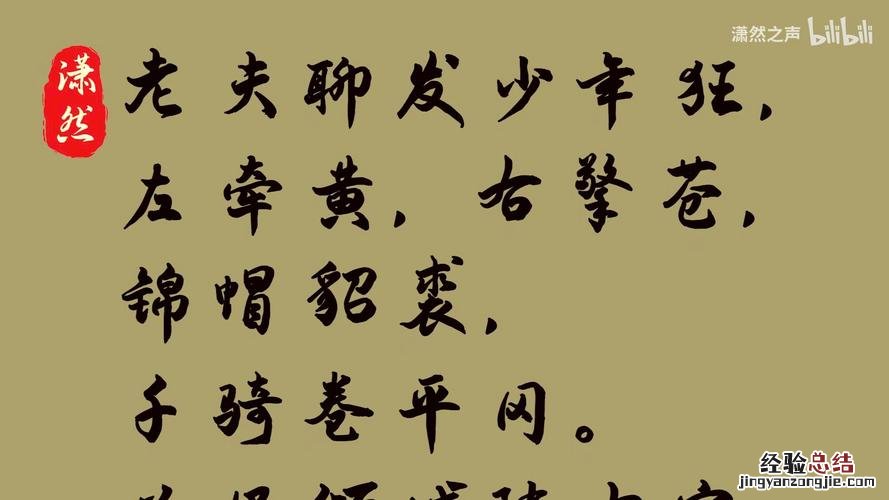 潇然之声 bilibili
潇然
老夫聊发少年狂，
左牵黄，右擎苍，
锦帽貂裘，
千骑卷平冈。
经验总结
jingyanzongjie.com